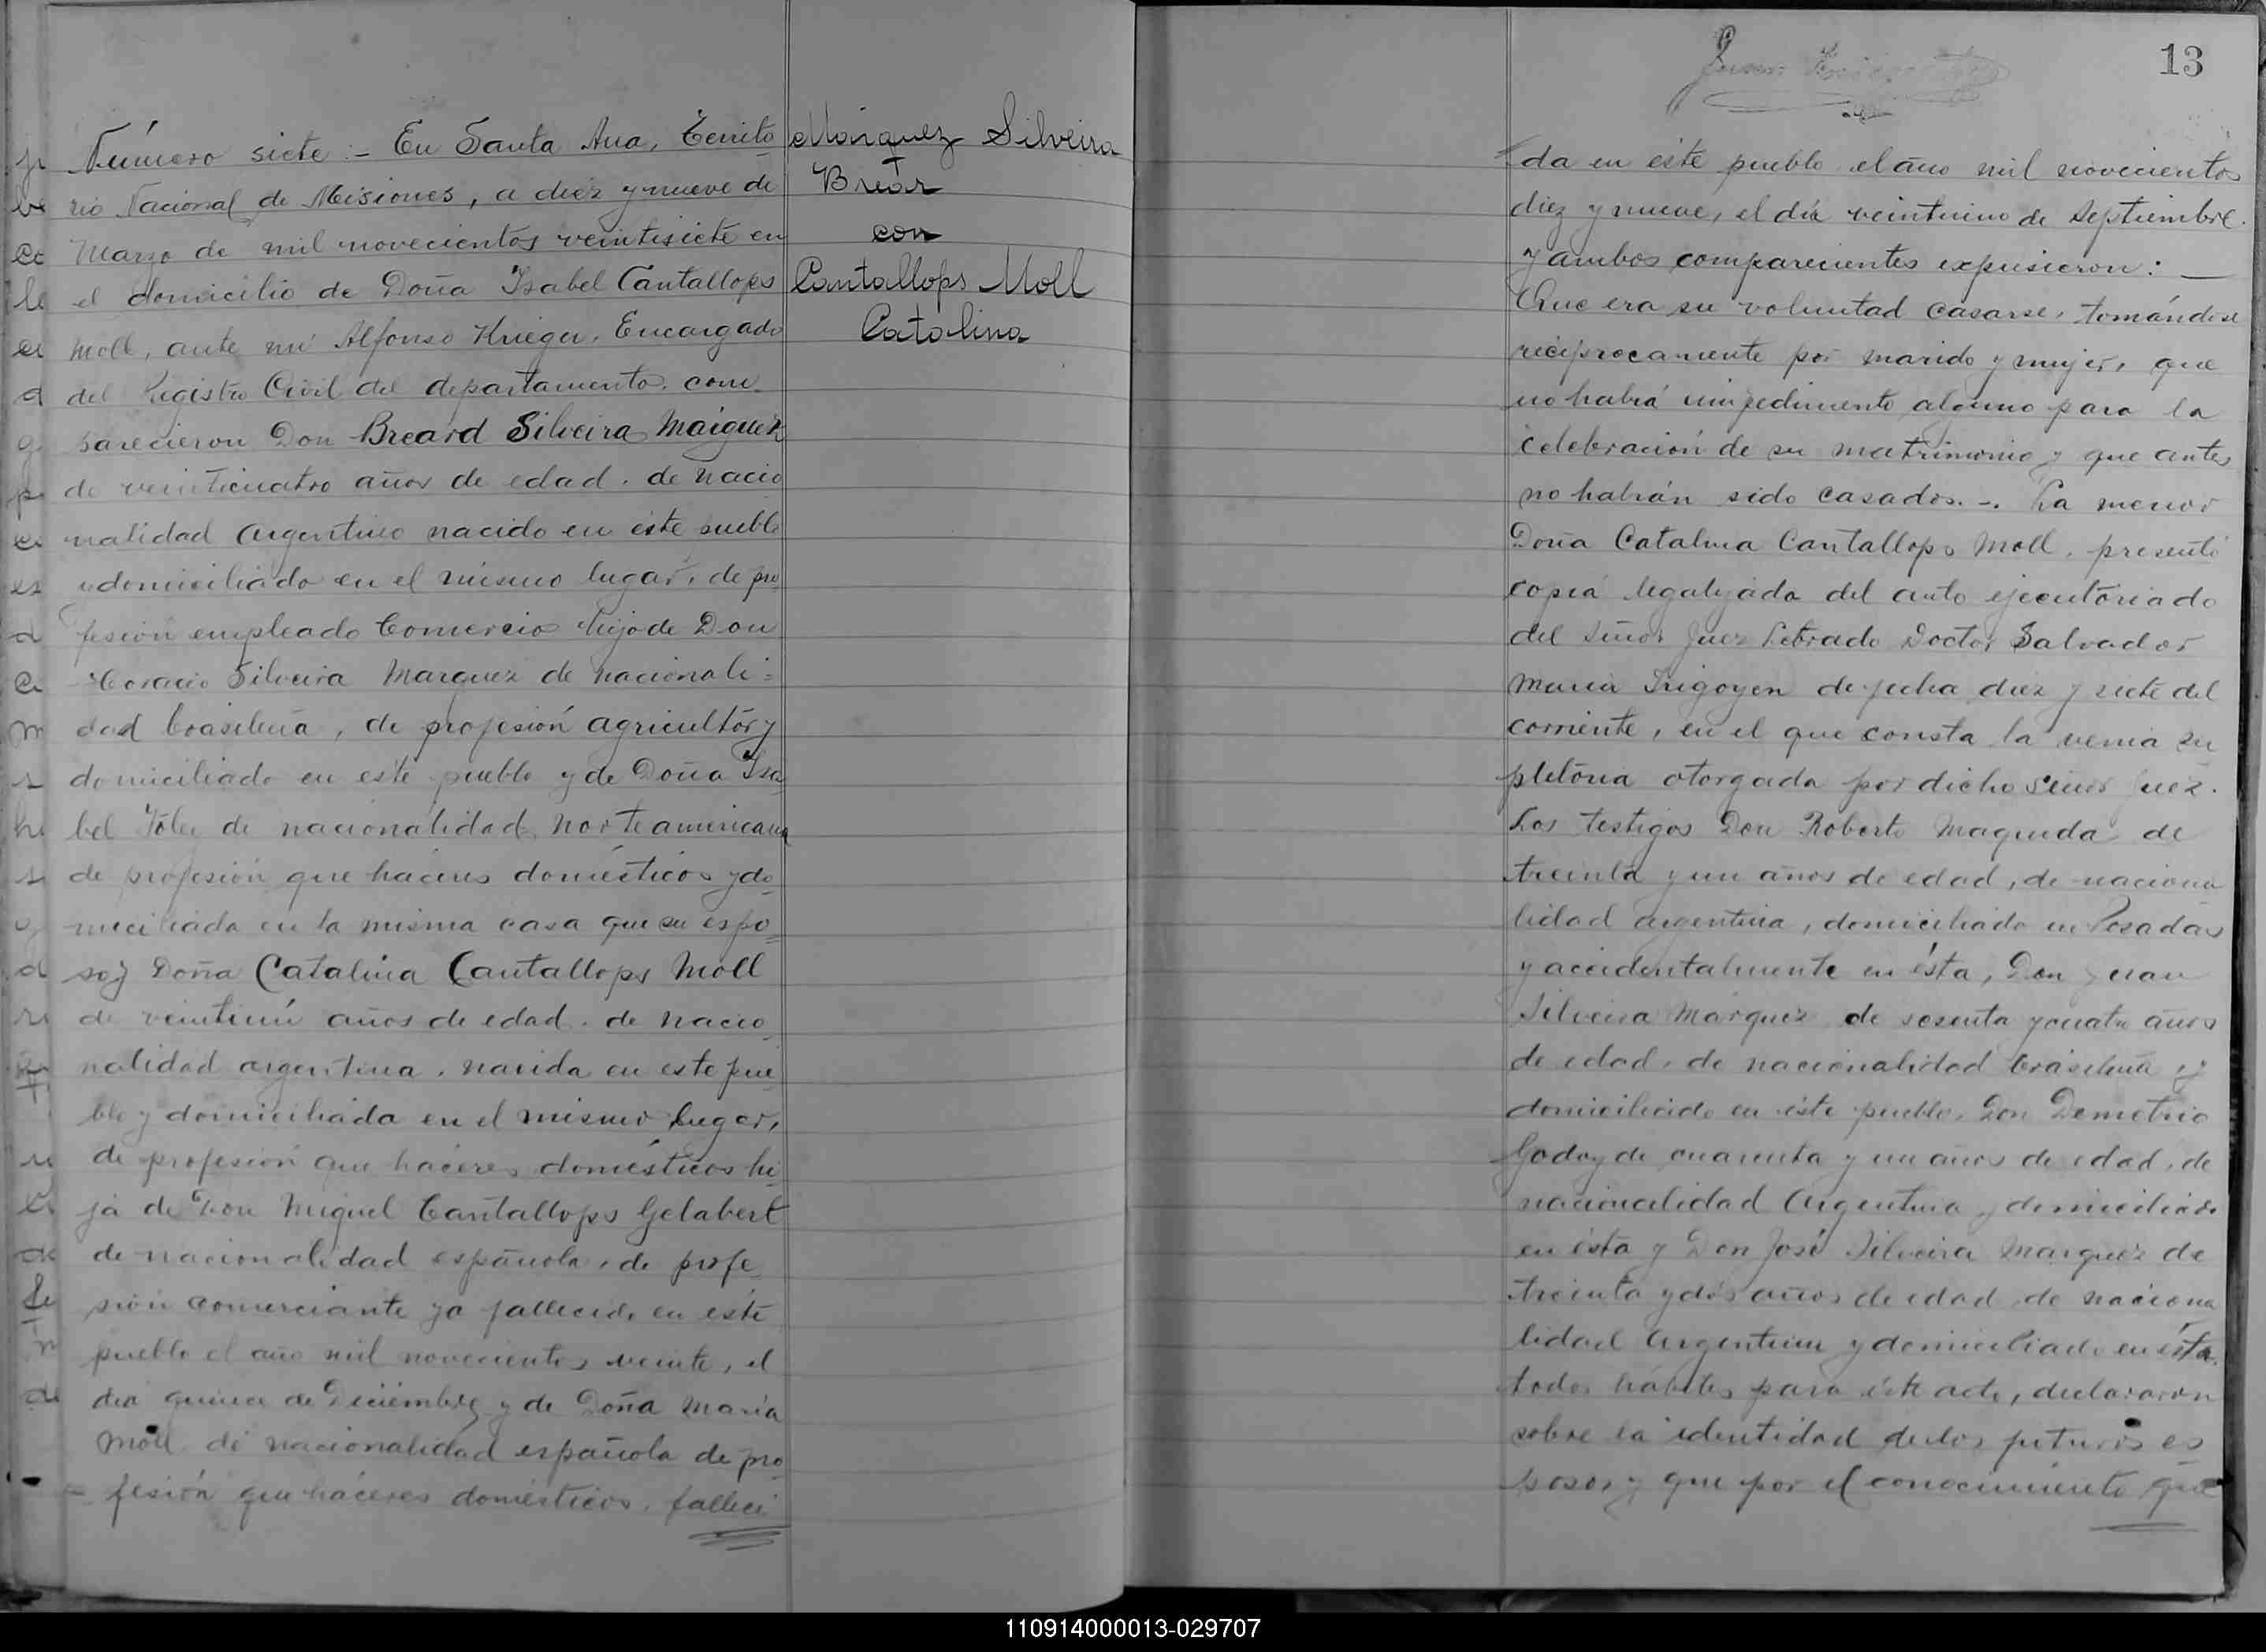 Número siete :- En Santa Ana, Territo
rio Nacional de Misiones, a diez y nueve de
Marzo de mil novecientos veintisiete en
el domicilio de Doña Isabel Cantallops
Moll, ante mi Alfonso Krieger, Encargado
del Registro Civil del departamento. com
parecieron Don Breard Silveira Márquez
de veinticuatro años de edad. de nacio
nalidad argentino nacido en este pueblo
domiciliado en el mismo lugar, de pro
fesión empleado Comercio hijo de Don
Horacio Silveira Marquez de nacionali=
dad brasileña, de profesión agricultor y
domiciliado en este pueblo y de Doña Isa
bel de nacionalidad norteamericana
de profesión que haceres domésticos y do
miciliada en la misma casa que su espo=
so y Doña Catalina Cantallops Moll
de veintiún años de edad. de nacio
nalidad argentina. nacida en este pue
blo y domiciliada en el mismo lugar,
de profesión que haceres domésticos hi
ja de Don Miguel Cantallops Gelabert
de nacionalidad española, de profe
sión comerciante ya fallecido en este
pueblo el año mil novecientos veinte, el
dia quince de Diciembre y de Doña María
Moll de nacionalidad española de pro
fesión que háceres domésticos, falleci
Márquez Silveira
Brear
con
Cantallops Moll
Catalina
13
da en este pueblo el año mil novecientos
diez y nueve, el día veintiuno de Septiembre.
y ambos comparecientes expusieron: —
Que era su voluntad casarse, tomándose
recíprocamente por marido y mujer, que
no habrá impedimento alguno para la
celebración de su matrimonio y que antes
no habrán sido casados. -. La menor
Doña Catalina Cantallops Moll, presentó
copia legalizada del auto ejecutoriado
del Señor Juez Letrado Doctor Salvador
María Irigoyen de fecha diez y siete del
corriente, en el que consta la venia su
pletoria otorgada por dicho Señor Juez.
Los testigos Don Roberto Maqueda de
treinta y un años de edad, de naciona
lidad argentina, domiciliado en Posadas
y accidentalmente en ésta, Don Juan
Silveira Márquez de sesenta y cuatro años
de edad, de nacionalidad brasileña y
domiciliado en éste pueblo, Don Demetrio
Godoy de cuarenta y un años de edad, de
nacionalidad Argentina y domiciliado
en ésta y Don José Silveira Marquez de
treinta y dós años de edad de naciona
lidad Argentina y domiciliado en ésta.
todos hábiles para éste acto, declararon
sobre la identidad de los futuros es
posos, y que por el conocimiento que
110914000013-029707